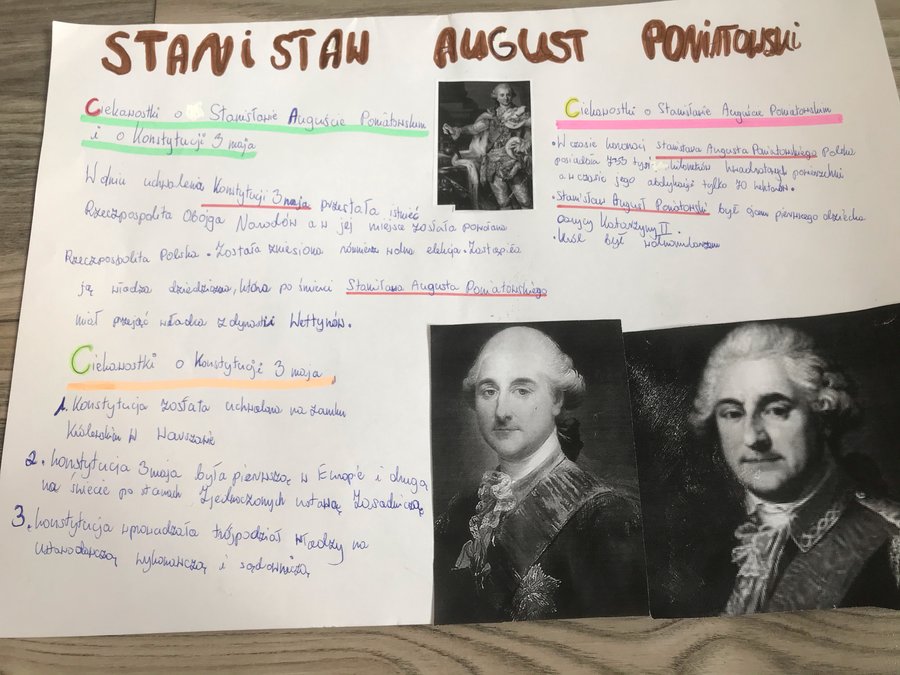 STANISŁAW AUGUST PONIATOWSKI
Ciekawostki o Stanisławie Auguście Poniatowskim
i o Konstytucji 3 maja
W dniu uchwalenia Konstytucji 3 maja przestała istnieć
Rzeczpospolita Obojga Narodów a w jej miejsce została powołana
Rzeczpospolita Polska. Została zniesiona również wolna elekcja. Zastąpiła
ją władza dziedziczna, która po śmierci Stanisława Augusta Poniatowskiego
miał przejąć władca z dynastii Wettynów.
Ciekawostki o Konstytucji 3 maja
1. Konstytucja została uchwalona na zamku
Królewskim w Warszawie
2. Konstytucja 3 maja była pierwszą w Europie i drugą
na świecie po stanach Zjednoczonych ustawą Zasadniczą
3. Konstytucja wprowadzała trójpodział władzy na
ustawodawczą wykonawczą i sądowniczą
Ciekawostki o Stanisławie Auguście Poniatowskim
• W czasie koronacji stanisława Augusta Poniatowskiego Polska
posiadała 733 tyś kilometrów kwadratowych powierzchni
a w czasie jego abdykacji tylko 70 hektarów.
• Stanisław August Poniatowski był ojcem pierwszego dziecka
carycy Katarzyny II.
• Król był wolnomularzem